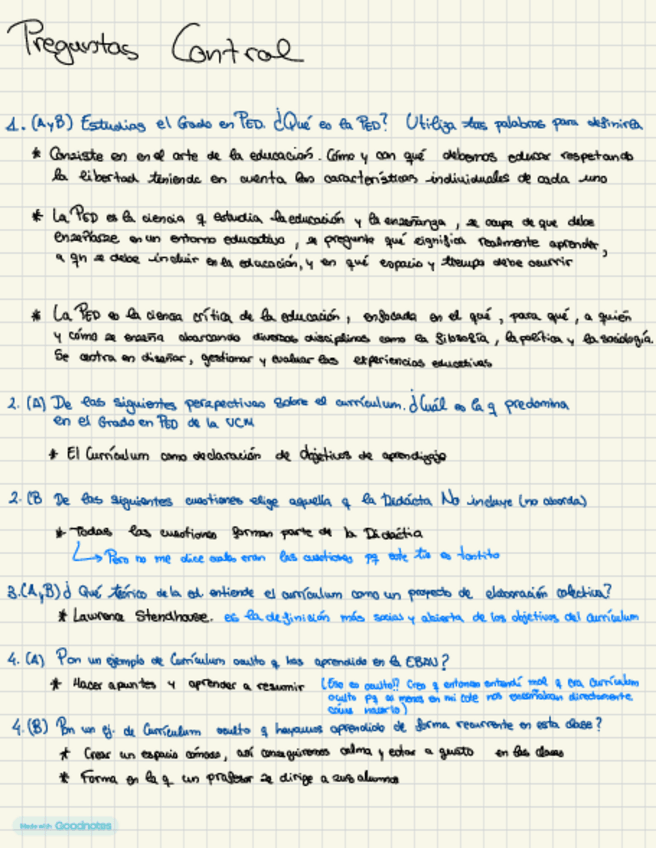 Preguntas Control
1. (A y B) Estudias el Grado en PED. ¿Qué es la PED? Utiliza tus palabras para definirla
* Consiste en en el arte de la educación. Cómo y con qué debemos educar respetando
la libertad teniendo en cuenta las características individuales de cada uno
* La PED es la ciencia q estudia la educación y la enseñanza, se ocupa de que debe
enseñarse en un entorno educativo, se pregunta qué significa realmente aprender,
a qn se debe incluir en la educación, y en qué espacio y tiempo debe ocurrir
* La PED es la ciencia crítica de la educación, enfocada en el qué, para qué, a quién
y cómo se enseña abarcando diversas disciplinas como la filosofía, la política y la sociología.
Se centra en diseñar, gestionar y evaluar las experiencias educativas
2. (A) De las siguientes perspectivas sobre el currículum. ¿Cuál es la q predomina
en el Grado en PED de la UCM
* El Currículum como declaración de objetivos de aprendizaje
2. (B De las siguientes cuestiones elige aquella q la Didácta No incluye (no aborda)
* Todas las cuestiones forman parte de la Didáctia
Pero no me dice cuales eran las cuestiones pq este tio es tontito
3. (A, B) ¿Qué teórico de la ed entiende el currículum como un proyecto de elaboración colectiva?
* Lawrence Stendhouse. es la definición más social y abierta de los objetivos del currículum
4. (A) Pon un ejemplo de Currículum oculto q has aprendido en la EBAU?
* Hacer apuntes y aprender a resumir (Eso es oculto!? Creo q entonces entendí mal q era currículum
oculto pq al menos en mi cole nos enseñaban directamente
cómo hacerlo)
4. (B) Pon un ej. de Currículum oculto q hayamos aprendido de forma recurrente en esta clase?
* Crear un espacio cómodo, así conseguiremos calma y estar a gusto en las clases
* Forma en la q un profesor se dirige a sus alumnos
Made with Goodnotes